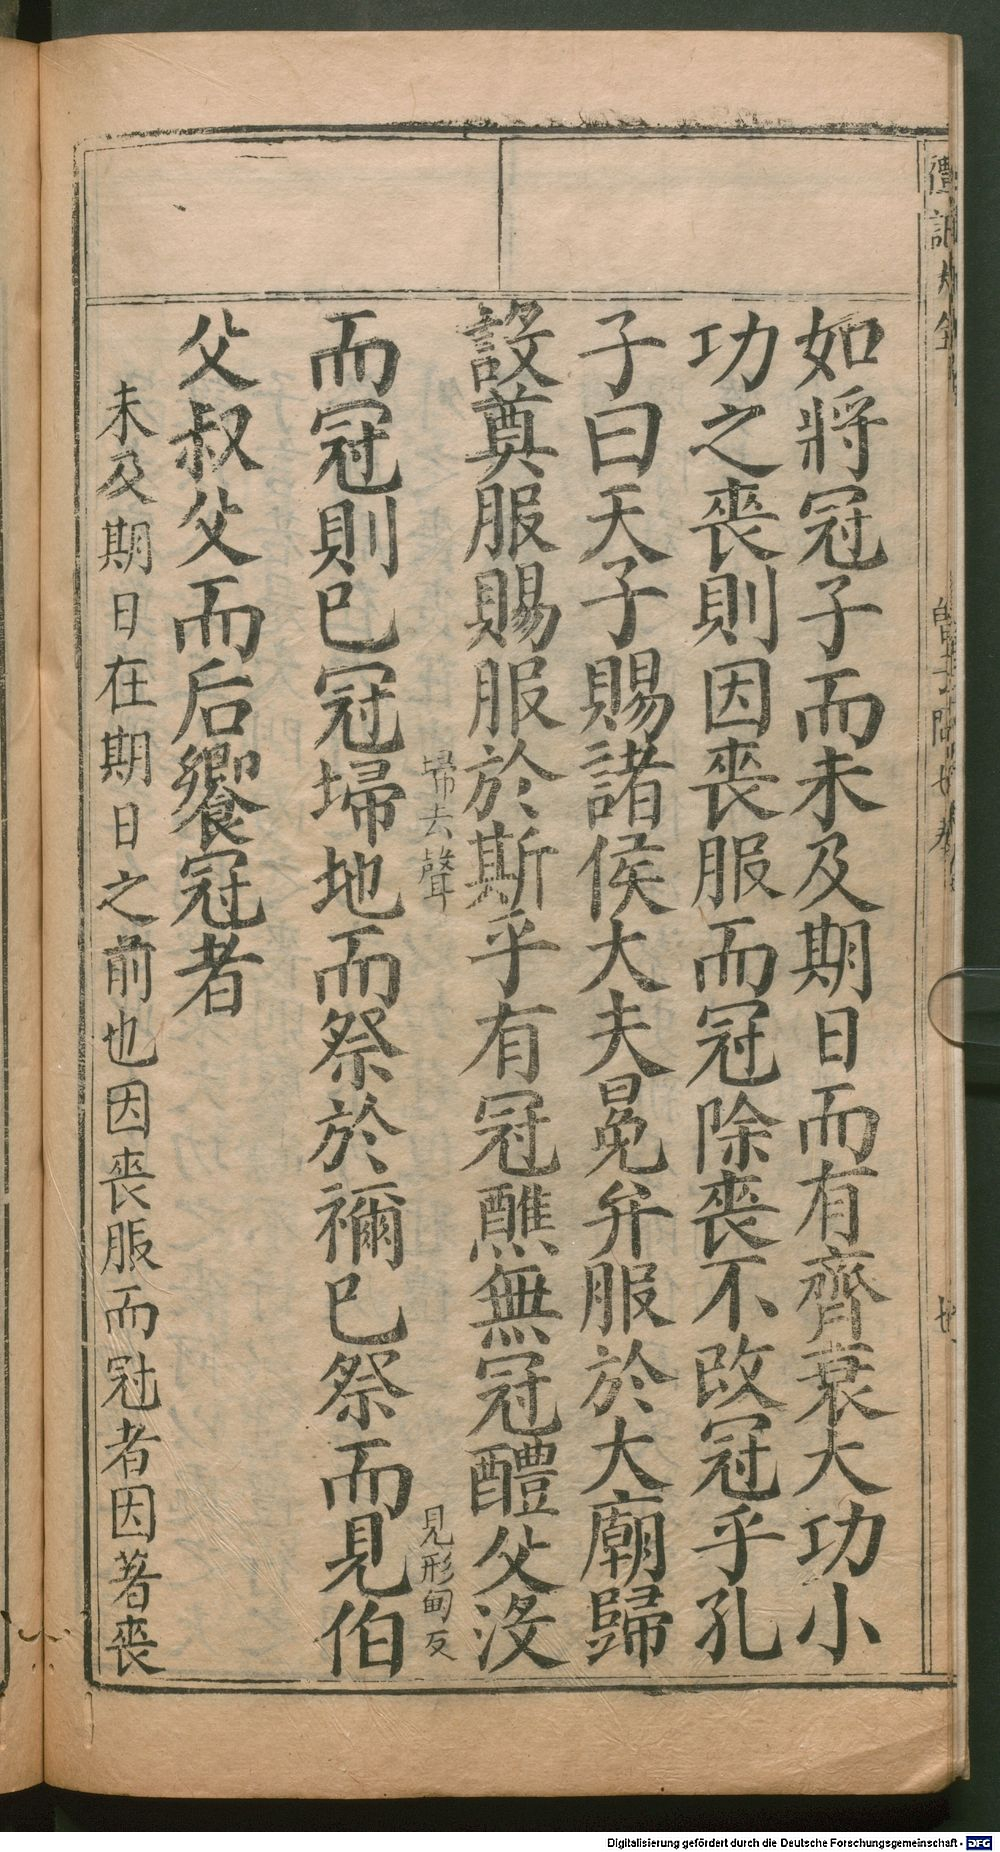 如將冠子而未及期日而有齊衰大功小
功之喪則因喪服而冠除喪不改冠乎孔
子曰天子賜諸侯大夫冕弁服於大廟歸
設奠服賜服於斯乎有冠醮無冠醴父沒
埽去聲
見形甸反
而冠則已冠埽地而祭於禰已祭而見伯
父叔父而后饗冠者
未及期日在期日之前也因喪服而冠者因著喪
Digitalisierung gefördert durch die Deutsche Forschungsgemeinschaft - DFG